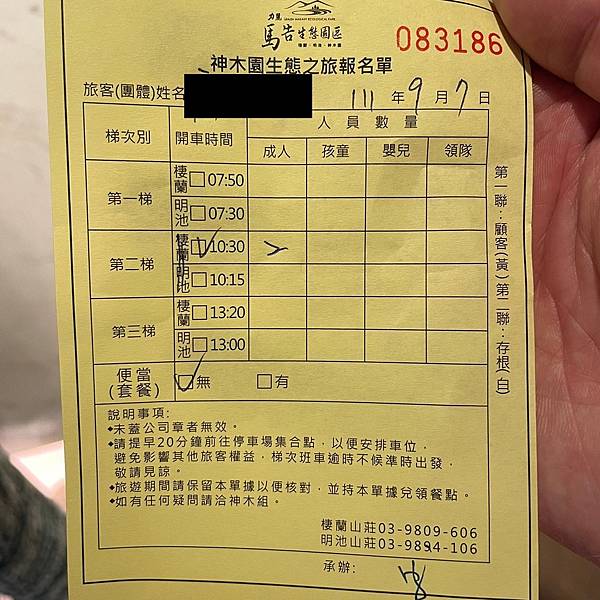 力麗
LEALEA MAKAUY ECOLOGICAL PARK
馬告生態園區
棲蘭・明池・神木園
083186
神木園生態之旅報名單
旅客(團體)姓名 111 年 9 月 7 日
梯次別 開車時間 人員數量
成人 孩童 嬰兒 領隊
第一梯 棲蘭 □ 07:50
明池 □ 07:30
第二梯 棲蘭 □ 10:30 2
明池 □ 10:15
第三梯 棲蘭 □ 13:20
明池 □ 13:00
便當(套餐) ☑無 □有
說明事項:
◆未蓋公司章者無效。
◆請提早20分鐘前往停車場集合點，以便安排車位，
避免影響其他旅客權益，梯次班車逾時不候準時出發，
敬請見諒。
◆旅遊期間請保留本單據以便核對，並持本單據兌領餐點。
◆如有任何疑問請洽神木組。
棲蘭山莊03-9809-606
明池山莊03-9894-106
承辦:
第一聯:顧客(黃) 第二聯:存根(白)